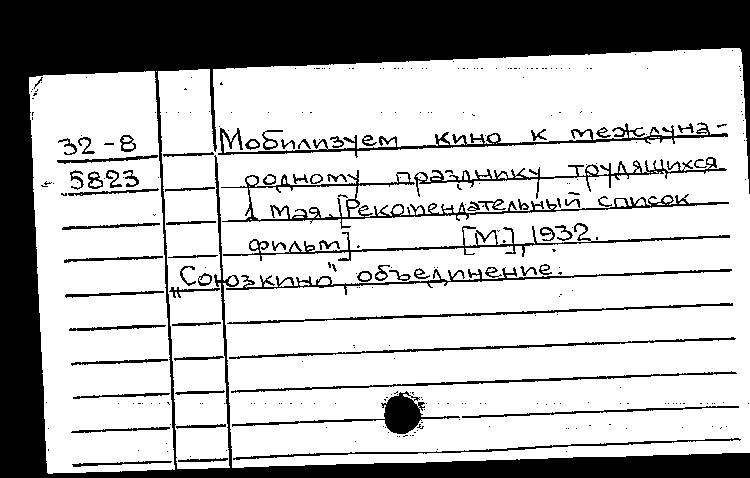 32-8 Мобилизуем кино к междуна-
5823 родному празднику трудящихся
1 мая. [Рекомендательный список
фильм]. [М.], 1932.
„Союзкино", объединение.